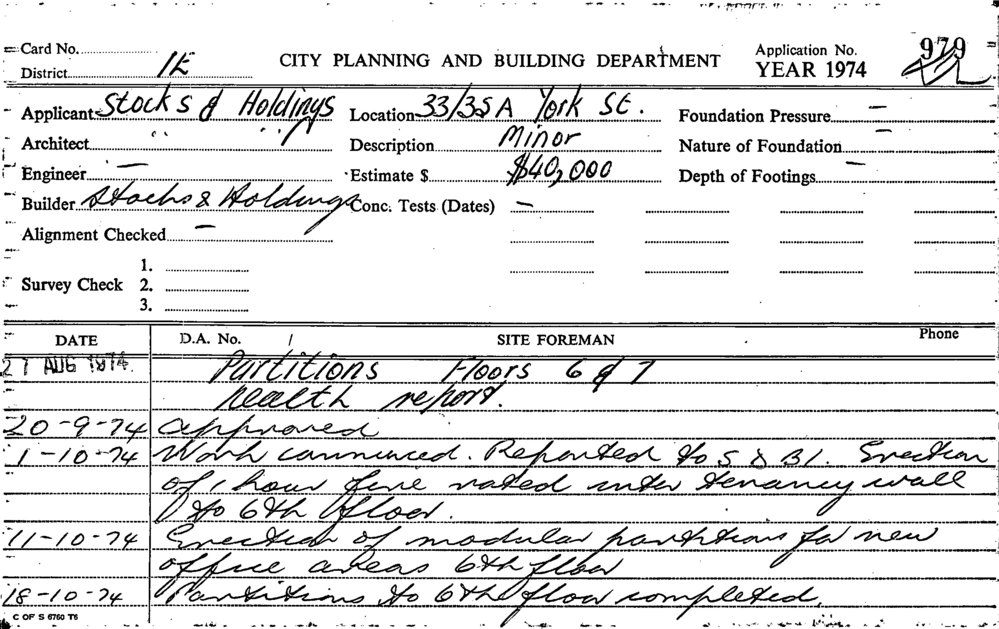 Card No. Application No. 979
District 1E CITY PLANNING AND BUILDING DEPARTMENT YEAR 1974
Applicant Stocks & Holdings Location 33/35A York St. Foundation Pressure —
Architect " " Description Minor Nature of Foundation —
Engineer — Estimate $ $40,000 Depth of Footings —
Builder Stocks & Holdings Conc. Tests (Dates) —
Alignment Checked —
1.
Survey Check 2.
3.
DATE D.A. No. / SITE FOREMAN Phone
27 AUG 1974 Partitions Floors 6 & 7
Health report.
20-9-74 Approved
1-10-74 Work commenced. Reported to S & B1. Erection
of 1 hour fire rated inter tenancy wall
to 6th floor.
11-10-74 Erection of modular partitions for new
office areas 6th floor
18-10-74 Partitions to 6th floor completed.
C OF S 6760 T6